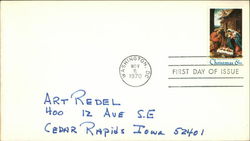 Christmas 6¢
WASHINGTON, DC
NOV
5
1970
FIRST DAY OF ISSUE
ART REDEL
400 12 AVE S.E
CEDAR RAPIDS IOWA 52401